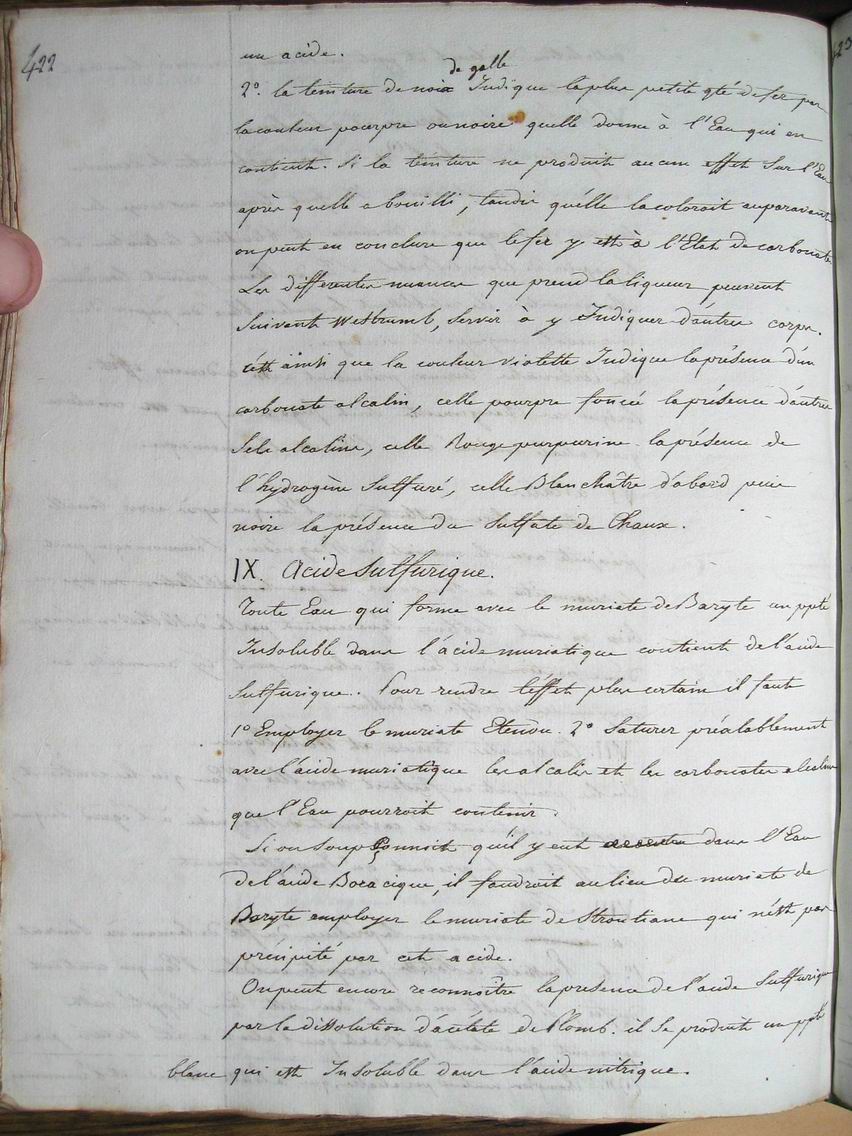 422
un acide.
2°. la teinture de noix de galle Indique la plus petite qté de fer par
la couleur pourpre ou noire quelle donne à l'Eau qui en
contient. Si la teinture ne produit aucun effet Sur l'Eau
après quelle a bouilli, tandis quélle la coloroit auparavant
on peut en conclure que le fer y est à l'Etat de carbonate
Les differentes nuances que prend la liqueur peuvent
Suivant Westrumb, Servir à y Indiquer dautres corps.
cést ainsi que la couleur violette Indique la présence dun
carbonate alcalin, celle pourpre foncée la présence dautres
Sels alcalins, celle Rouge purpurine la présence de
l'hydrogène Sulfuré, celle Blanchâtre d'abord puis
noire la présence du Sulfate de Chaux.
IX. Acide Sulfurique.
Toute Eau qui forme avec le muriate de Baryte un ppté
Insoluble dans l'ácide muriatique contient de l'acide
Sulfurique. Pour rendre l'éffet plus certain il faut
1° Employer le muriate Etendu. 2° Saturer préalablement
avec l'acide muriatique les alcalis et les carbonates alcalins
que l'Eau pourroit contenir.
Si on Soupçonnoit qu'il y eut dans l'Eau
de l'acide Boracique, il faudroit au lieu du muriate de
Baryte employer le muriate de Strontiane qui n'ést pas
précipité par cet acide.
On peut encore reconnoître la presence de l'acide Sulfurique
par la dissolution d'acétate de Plomb. il Se produit un ppté
blanc qui est Insoluble dans l'ácide nitrique.